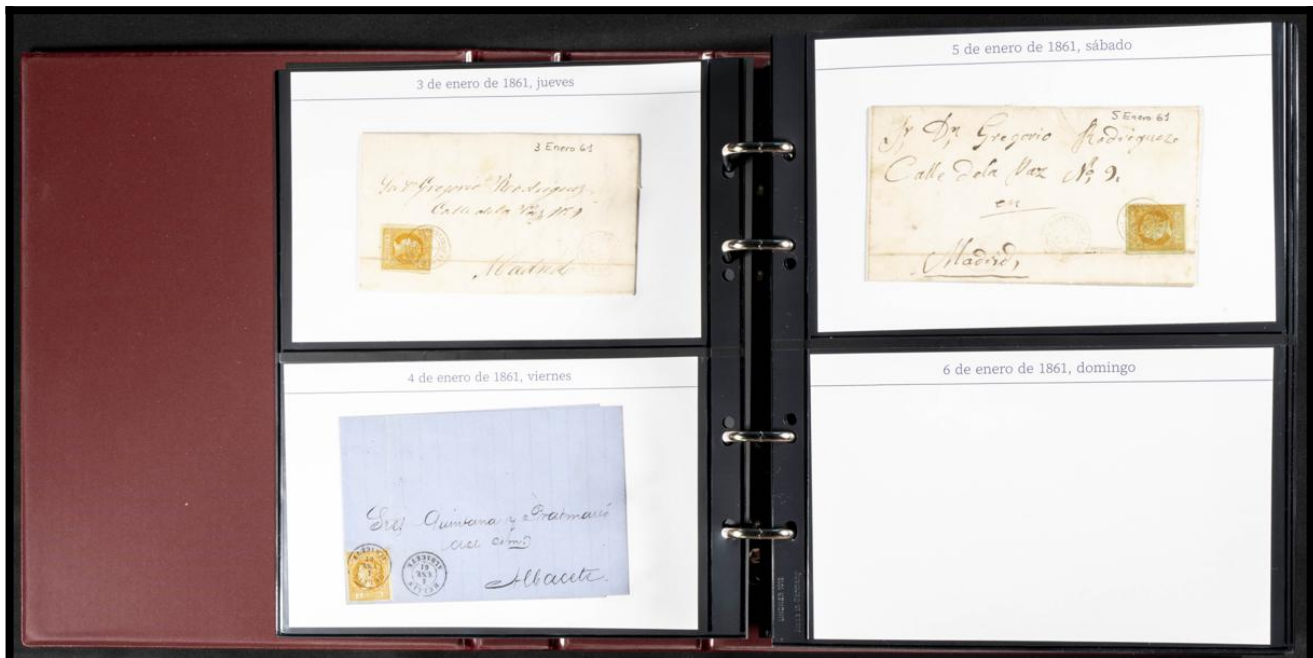 3 de enero de 1861, jueves
3 Enero 61
Gregorio Rodriguez
Calle de la Paz Nº 9
Madrid
4 de enero de 1861, viernes
Sres Quintana y
del com.
Albacete.
5 de enero de 1861, sábado
5 Enero 61
Sr Dn Gregorio Rodriguez
Calle de la Paz Nº 9.
en
Madrid,
6 de enero de 1861, domingo